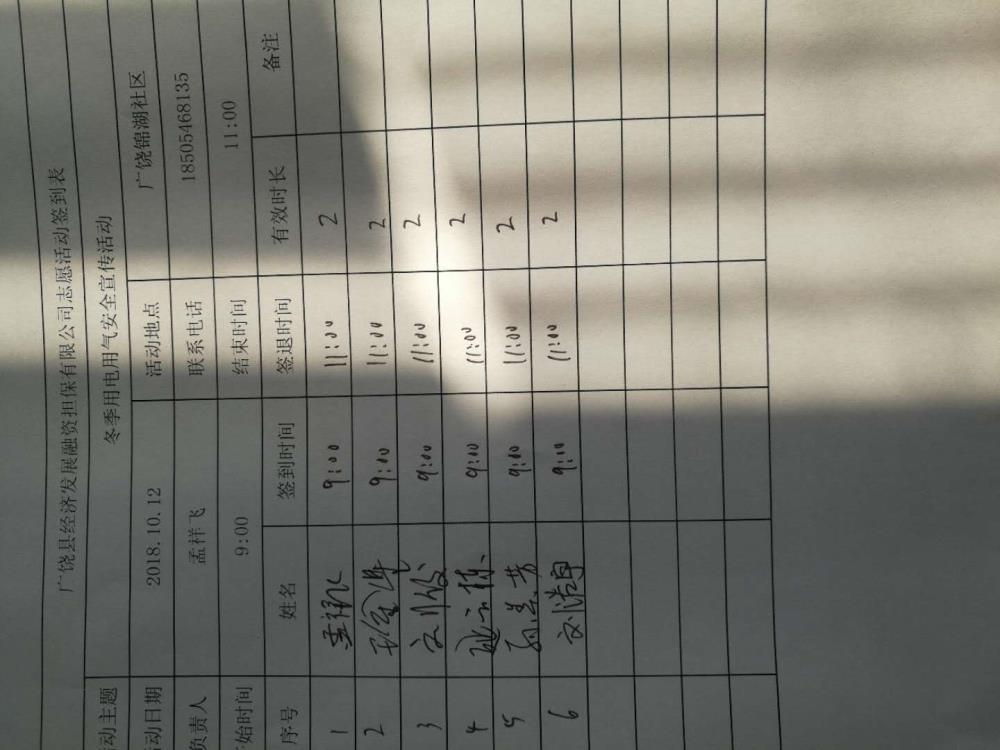 广饶县经济发展融资担保有限公司志愿活动签到表
动主题 冬季用电用气安全宣传活动
活动日期 2018.10.12 活动地点 广饶锦湖社区
负责人 孟祥飞 联系电话 18505468135
开始时间 9:00 结束时间 11:00
序号 姓名 签到时间 签退时间 有效时长 备注
1 9:00 11:00 2
2 9:00 11:00 2
3 9:00 11:00 2
4 9:00 11:00 2
5 9:00 11:00 2
6 9:10 11:00 2